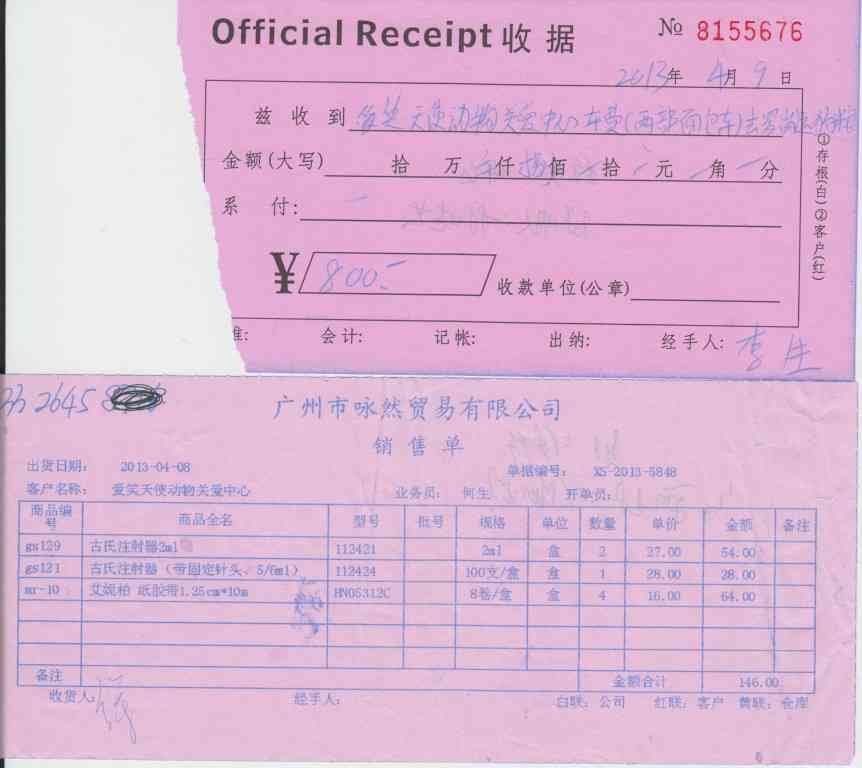 Official Receipt 收据
№ 8155676
2013年 4月 9日
兹收到 爱笑天使动物关爱中心车费(两部面包车)去
金额(大写) 拾 万 仟 捌佰 拾 元 角 分
系 付:
¥ 800.-
收款单位(公章)
准: 会计: 记帐: 出纳: 经手人: 李生
①存根(白)②客户(红)
2645
广州市咏然贸易有限公司
销售单
出货日期: 2013-04-08 单据编号: XS-2013-5848
客户名称: 爱笑天使动物关爱中心 业务员: 何生 开单员:
商品编号 商品全名 型号 批号 规格 单位 数量 单价 金额 备注
gs129 古氏注射器2ml 112421 2ml 盒 2 27.00 54.00
gs121 古氏注射器(带固定针头、5/6ml) 112424 100支/盒 盒 1 28.00 28.00
mr-10 艾妮柏 纸胶带1.25cm*10m HN05312C 8卷/盒 盒 4 16.00 64.00
备注 金额合计 146.00
收货人: 经手人: 白联:公司 红联:客户 黄联:仓库